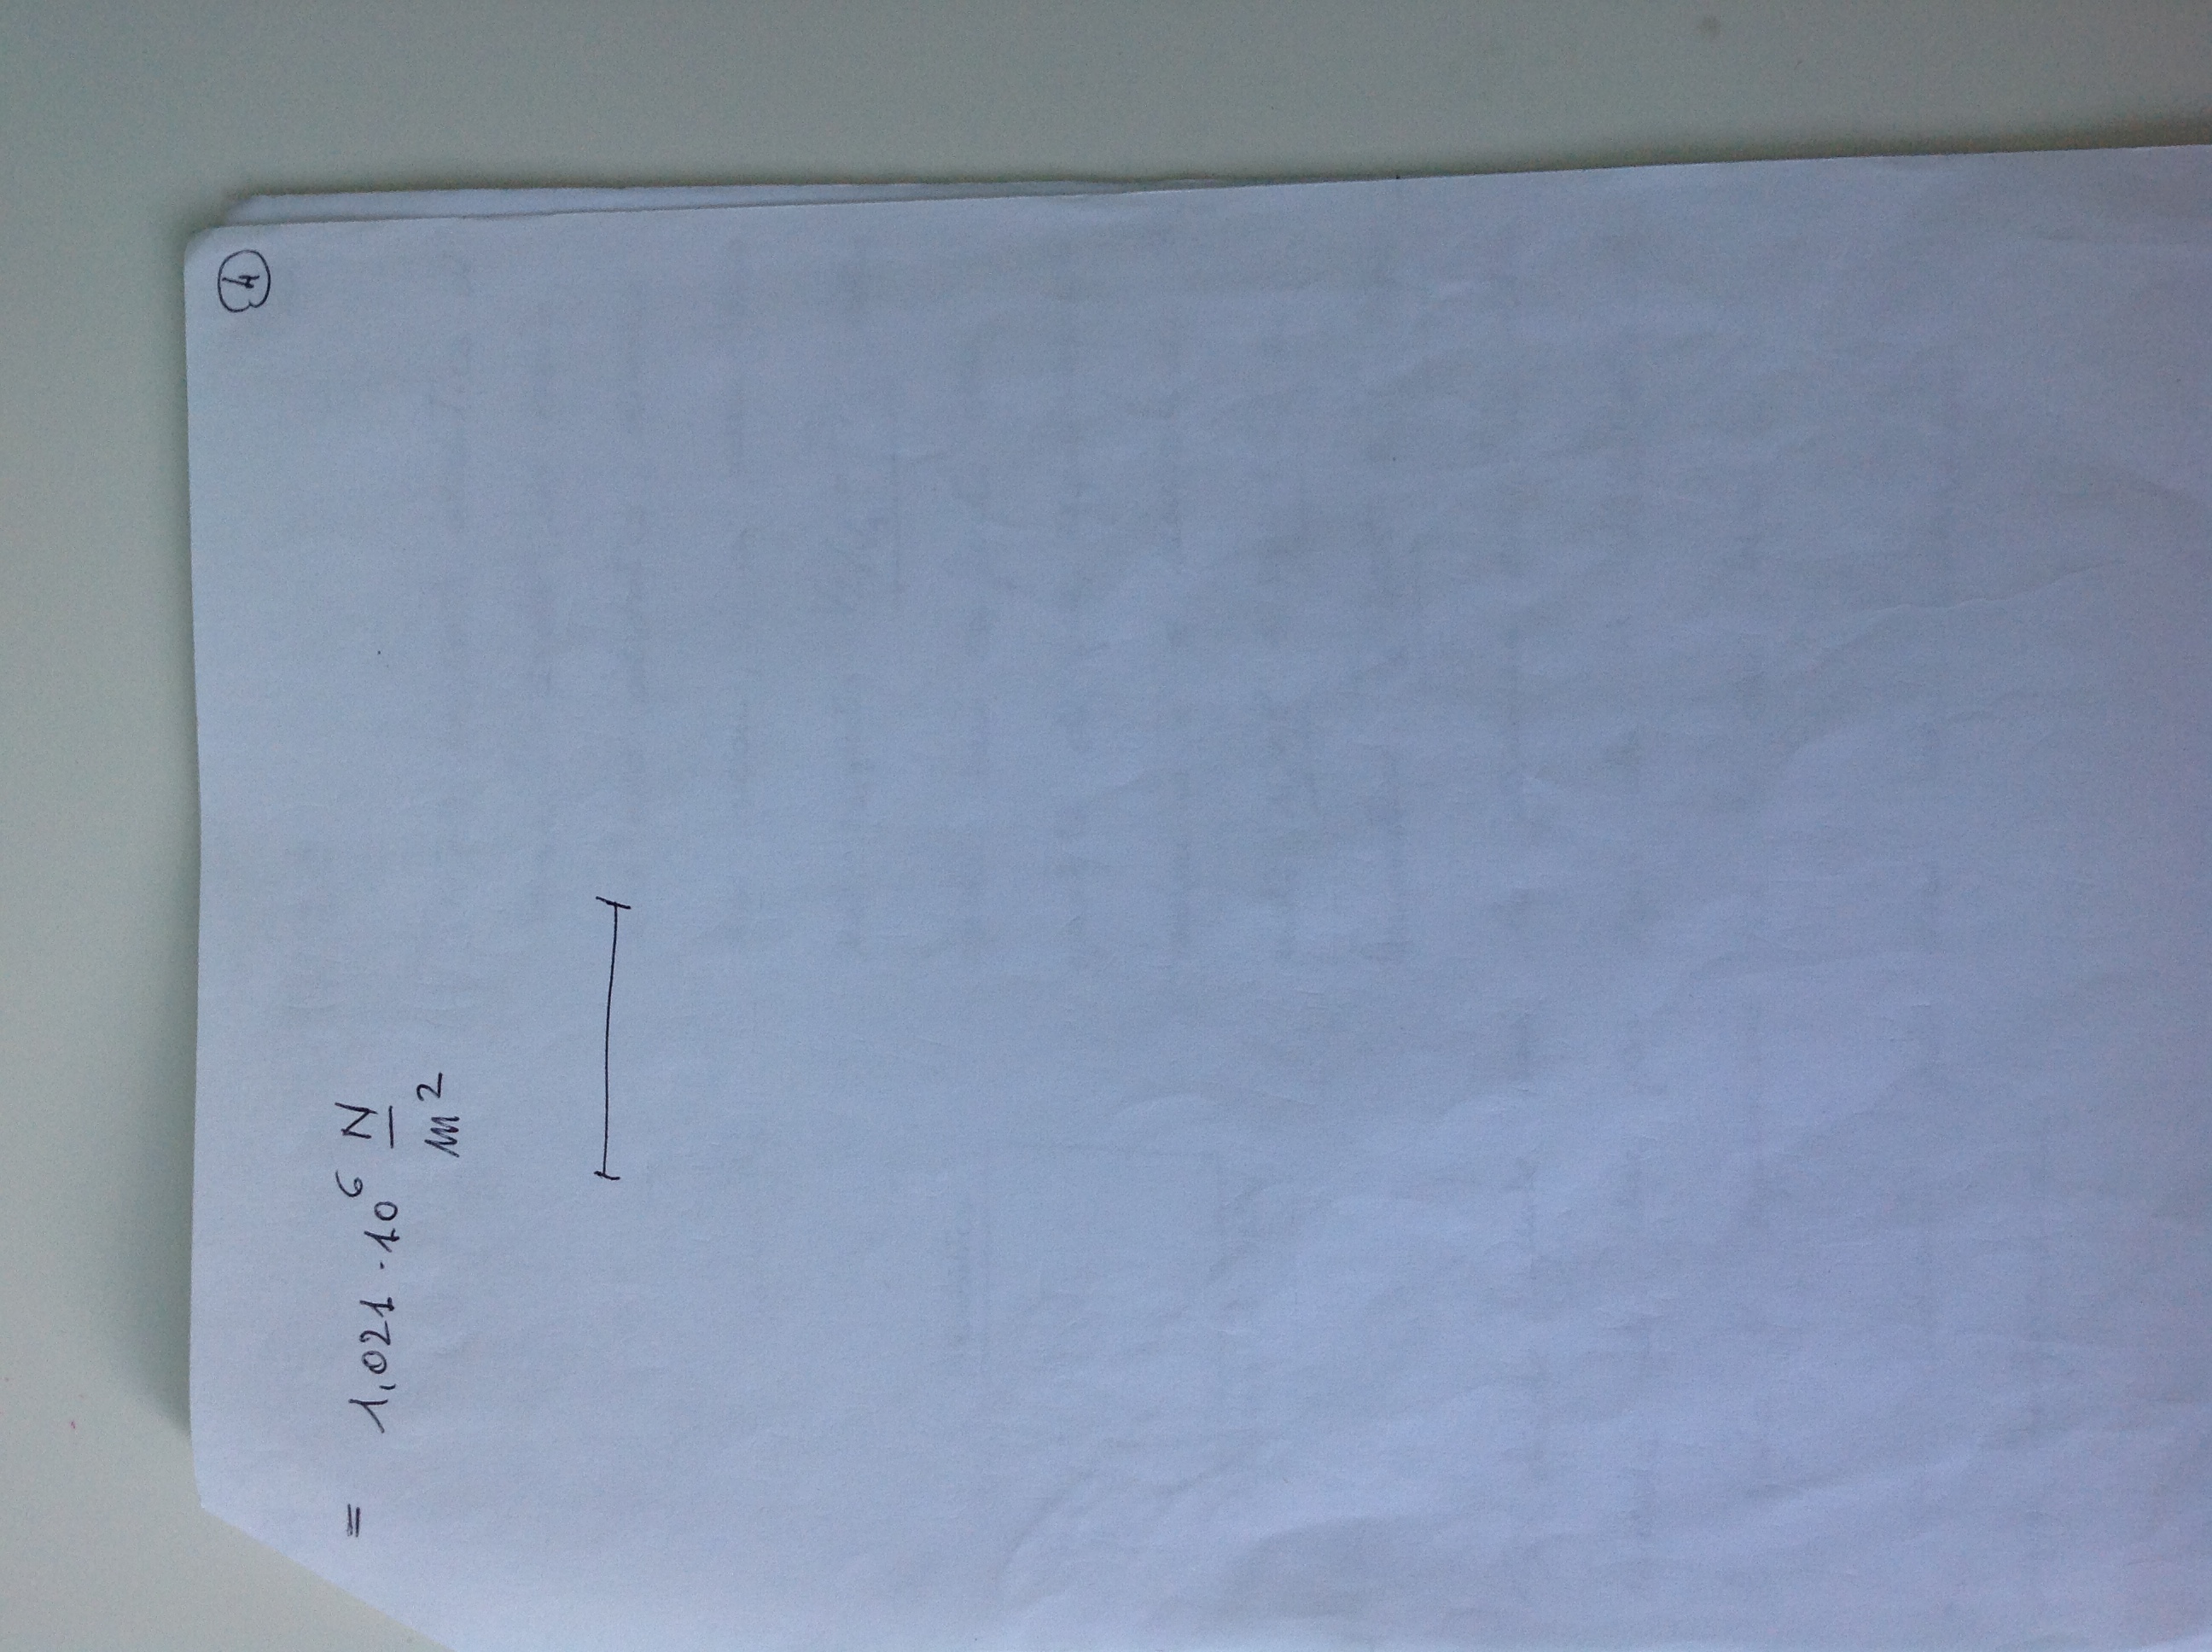 4
= 1,021 · 10⁶ N/m²